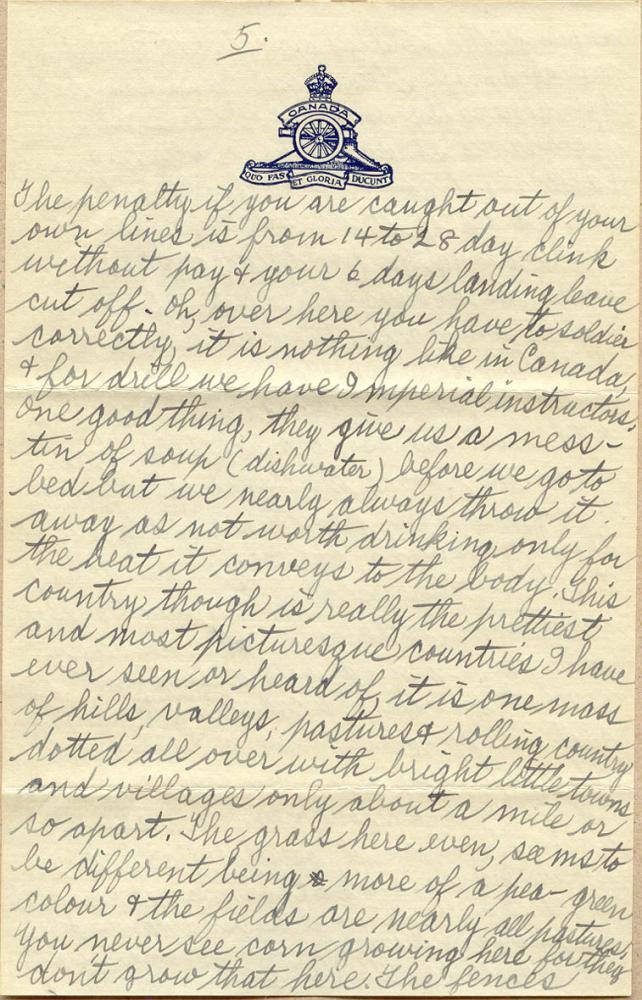 5.
CANADA
QUO FAS ET GLORIA DUCUNT
The penalty if you are caught out of your
own lines is from 14 to 28 day clink
without pay & your 6 days landing leave
cut off. Oh, over here you have to soldier
correctly, it is nothing like in Canada,
& for drill we have Imperial instructors.
One good thing, they give us a mess-
tin of soup (dishwater) before we go to
bed but we nearly always throw it
away as not worth drinking only for
the heat it conveys to the body. This
country though is really the prettiest
and most picturesque countries I have
ever seen or heard of, it is one mass
of hills, valleys, pastures & rolling country
dotted all over with bright little towns
and villages only about a mile or
so apart. The grass here even, seems to
be different being more of a pea-green
colour & the fields are nearly all pastures,
you never see corn growing here for they
don't grow that here. The fences